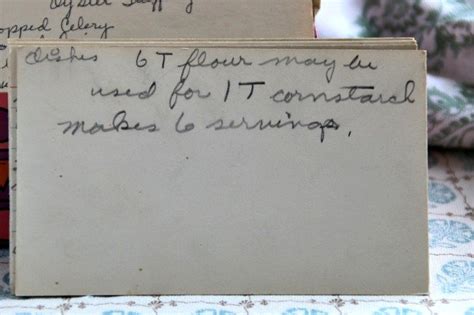 Oyster
opped Celery
Dishes 6 T flour may be
used for 1 T cornstarch
makes 6 servings.